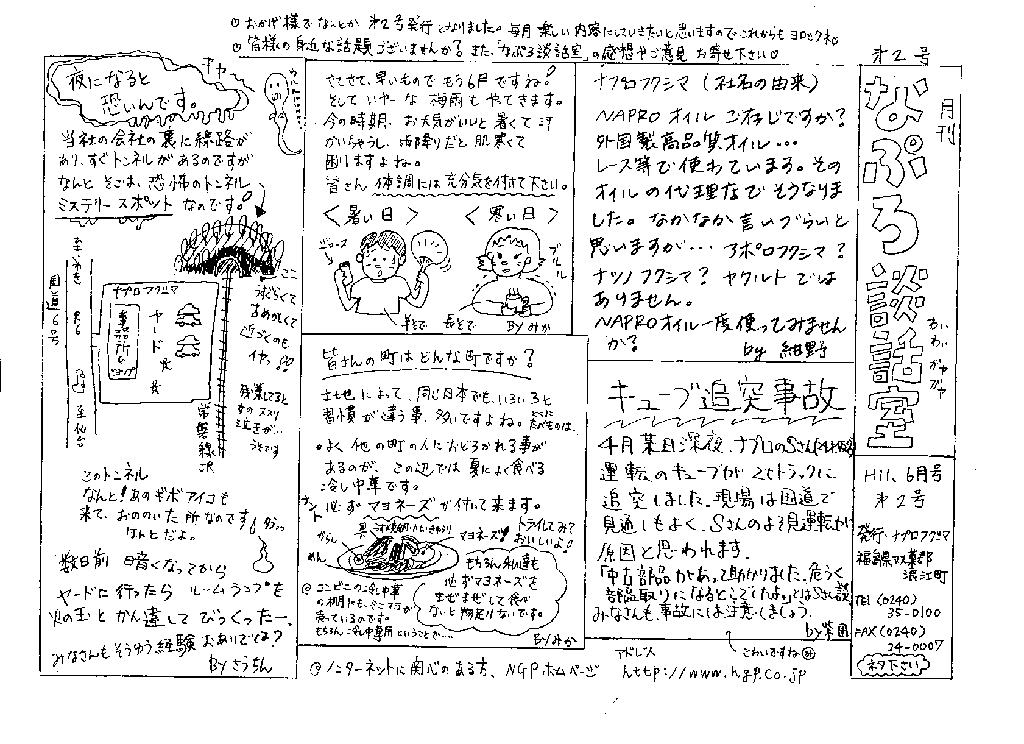 ◎おかげ様でなんとか 第2号発行となりました。毎月楽しい内容にしていきたいと思いますのでこれからもヨロシクね
◎皆様の身近な話題ございませんか？また、「なぷろ談話室」の感想やご意見お寄せ下さい
第2号
月刊
なぷろ談話室
わいわいガヤガヤ
H11. 6月号
第2号
発行・ナプロフクシマ
福島県双葉郡
浪江町
TEL (0240)
35-0100
FAX (0240)
34-0007
ナプロフクシマ (社名の由来)
NAPROオイル ご存じですか？
外国製高品質オイル…
レース等で使われています。その
オイルの代理店でそうなりま
した。なかなか言いづらいと
思いますが… アポロフクシマ？
ナツノフクシマ？ ヤクルトでは
ありません。
NAPROオイル一度使ってみません
か？
by 紺野
キューブ追突事故
4月某日深夜、ナプロのSさん
運転のキューブが2tトラックに
追突しました。現場は国道で
見通しもよく、Sさんのよそ見運転が
原因と思われます。
「中古部品があって助かりました。危うく
部品取りになるところでしたよ。」とはSさん談
みなさんも、事故には注意しましょう。
こわいですね
さてさて、早いものでもう6月ですね！
そしていやーな 梅雨もやってきます。
今の時期、お天気がいいと暑くて汗
かいちゃうし、雨降りだと肌寒くて
困りますよね。
皆さん 体調には充分気を付けて下さい。
＜暑い日＞
＜寒い日＞
ジュース
ブルル
半そで
長そで
Byみか
皆さんの町はどんな町ですか？
土地によって、同じ日本でも、いろいろと
習慣が違う事、多いですよね。
・よく他の町の人におどろかれる事が
あるのが、この辺では夏によく食べる
冷し中華です。
ナント 必ずマヨネーズが付いて来ます。
からし
めん
マヨネーズ
トライしてみて？
おいしいよ！
もちろん私達も
必ずマヨネーズを
まぜまぜして食べ
ないと物足りないです。
◎コンビニの冷し中華
売っているのです。
Byみか
夜になると
恐いんです。
当社の会社の裏に線路が
あり、すぐトンネルがあるのですが
なんと そこは、恐怖のトンネル
ミステリースポットなのです。
至いわき
国道6号
至仙台
ナプロフクシマ
事務所
ヤード
常磐線
ここ
うすぐらくて
近づくのも
イヤ！
このトンネル
なんと！あのギボアイコも
来て、おののいた所なのです
なんとだよ。
数日前 暗くなってから
ヤードに行ったら ルームランプを
火の玉とかん違してびっくったー。
みなさんもそうゆう経験おありでてよ？
Byさっちん
◎インターネットに関心のある方、NGPホームページ
アドレス
http://www.ngp.co.jp